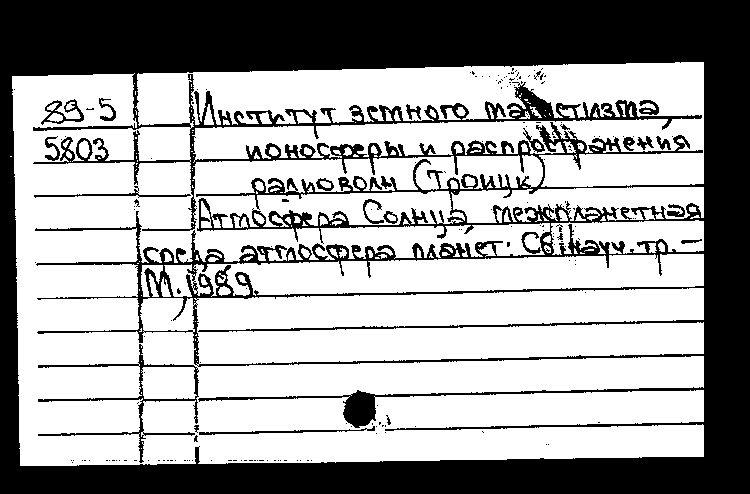 89-5 Институт земного магнетизма,
5803 ионосферы и распространения
радиоволн (Троицк)
Атмосфера Солнца, межпланетная
среда, атмосфера планет: Сб. науч. тр. –
М., 1989.